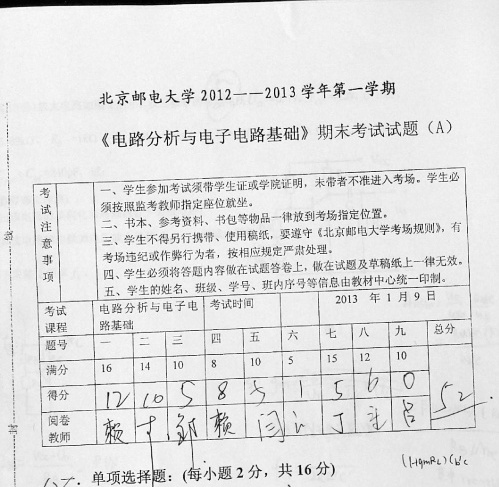 北京邮电大学 2012——2013 学年第一学期
《电路分析与电子电路基础》期末考试试题（A）
考试注意事项
一、学生参加考试须带学生证或学院证明，未带者不准进入考场。学生必
须按照监考教师指定座位就坐。
二、书本、参考资料、书包等物品一律放到考场指定位置。
三、学生不得另行携带、使用稿纸，要遵守《北京邮电大学考场规则》，有
考场违纪或作弊行为者，按相应规定严肃处理。
四、学生必须将答题内容做在试题答卷上，做在试题及草稿纸上一律无效。
五、学生的姓名、班级、学号、班内序号等信息由教材中心统一印制。
考试课程 电路分析与电子电路基础 考试时间 2013 年 1 月 9 日
题号 一 二 三 四 五 六 七 八 九 总分
满分 16 14 10 8 10 5 15 12 10
得分 12 10 5 8 5 1 5 6 0 52
阅卷教师 赖 赖 闫 丁 吕
一. 单项选择题：(每小题 2 分，共 16 分)